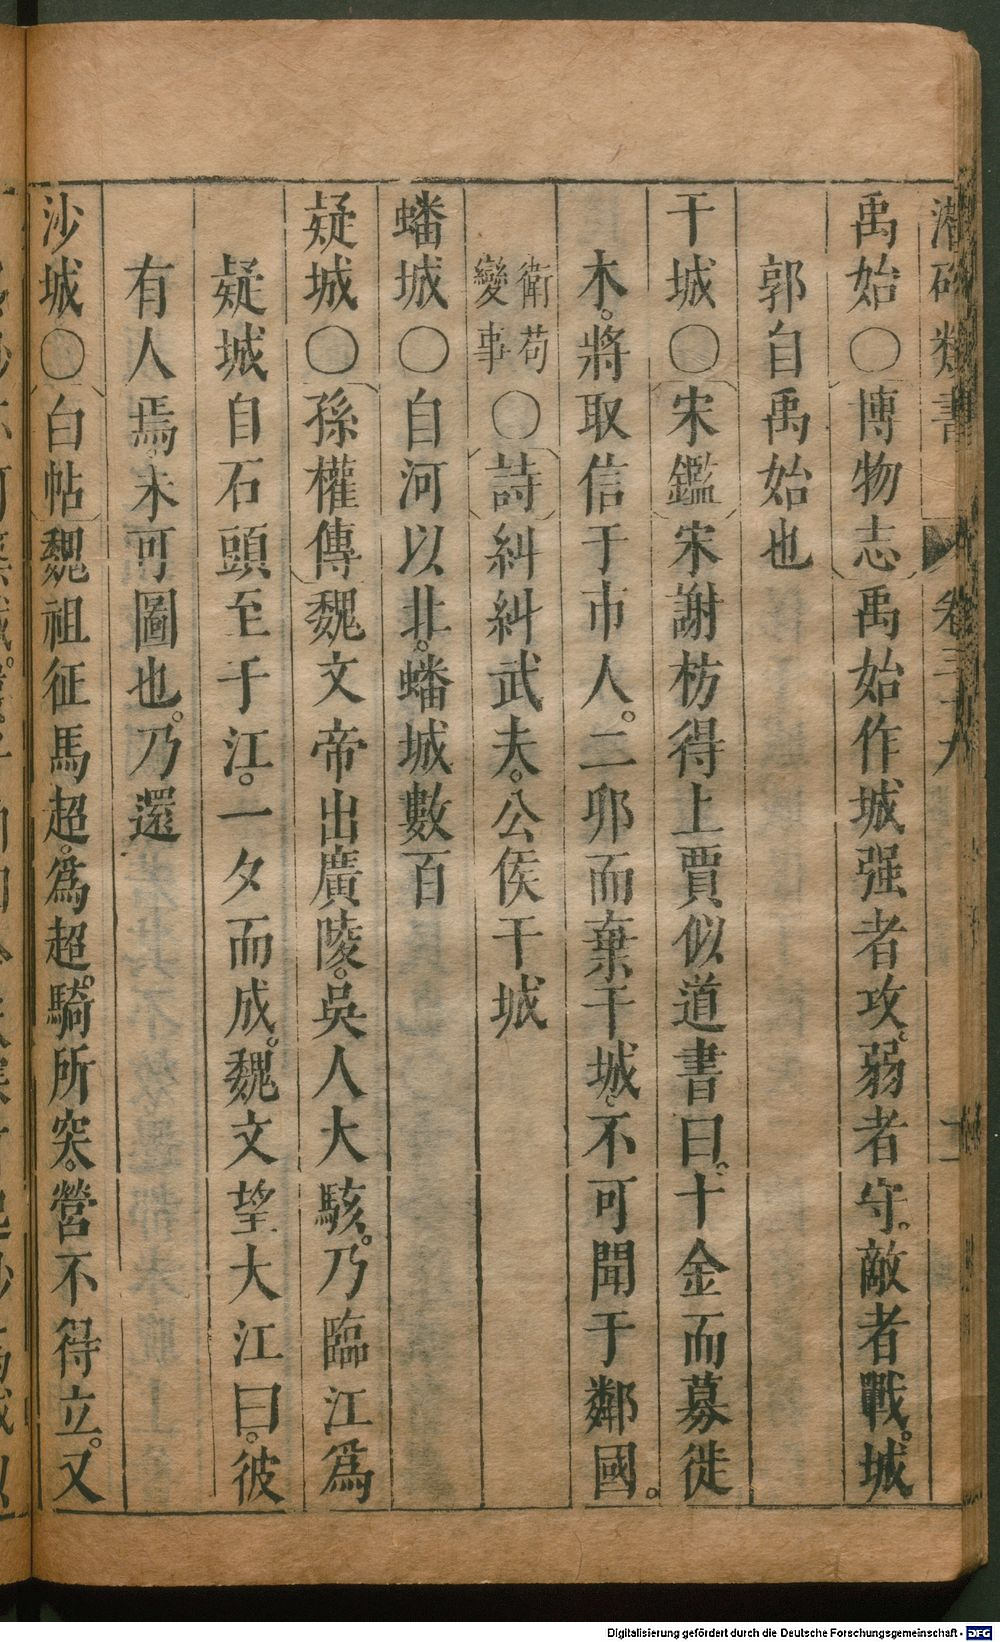 潛確類書 卷三十九 十一
禹始○〔博物志〕禹始作城强者攻。弱者守。敵者戰。城
郭自禹始也
干城○〔宋鑑〕宋謝枋得上賈似道書曰。十金而募徙
木。將取信于市人。二卵而棄干城。不可聞于鄰國。
衛苟
變事○〔詩〕糾糾武夫。公侯干城
蟠城○自河以北。蟠城數百
疑城○〔孫權傳〕魏文帝出廣陵。吳人大駭。乃臨江爲
疑城自石頭至于江。一夕而成。魏文望大江曰。彼
有人焉。未可圖也。乃還
沙城○〔白帖〕魏祖征馬超。爲超騎所突。營不得立。又
Digitalisierung gefördert durch die Deutsche Forschungsgemeinschaft - DFG